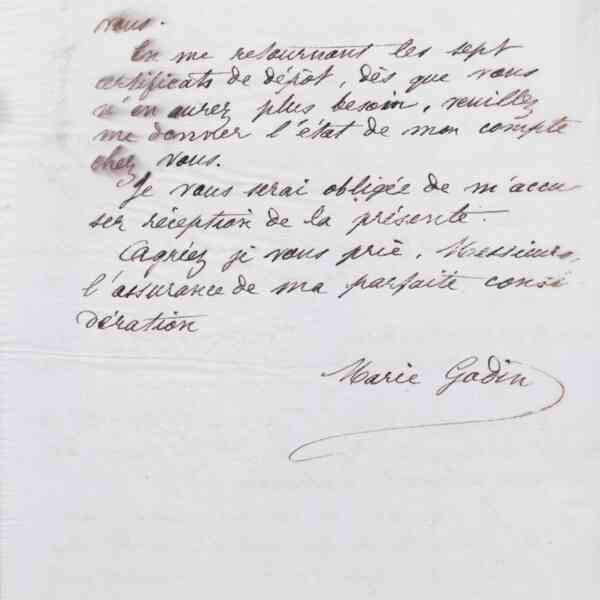 vous.
En me retournant les sept
certificats de dépôt, dès que vous
n'en aurez plus besoin, veuillez
me donner l'état de mon compte
chez vous.
Je vous serai obligée de m'accu-
ser réception de la présente.
Agréez je vous prie, Messieurs,
l'assurance de ma parfaite consi-
dération
Marie Godin